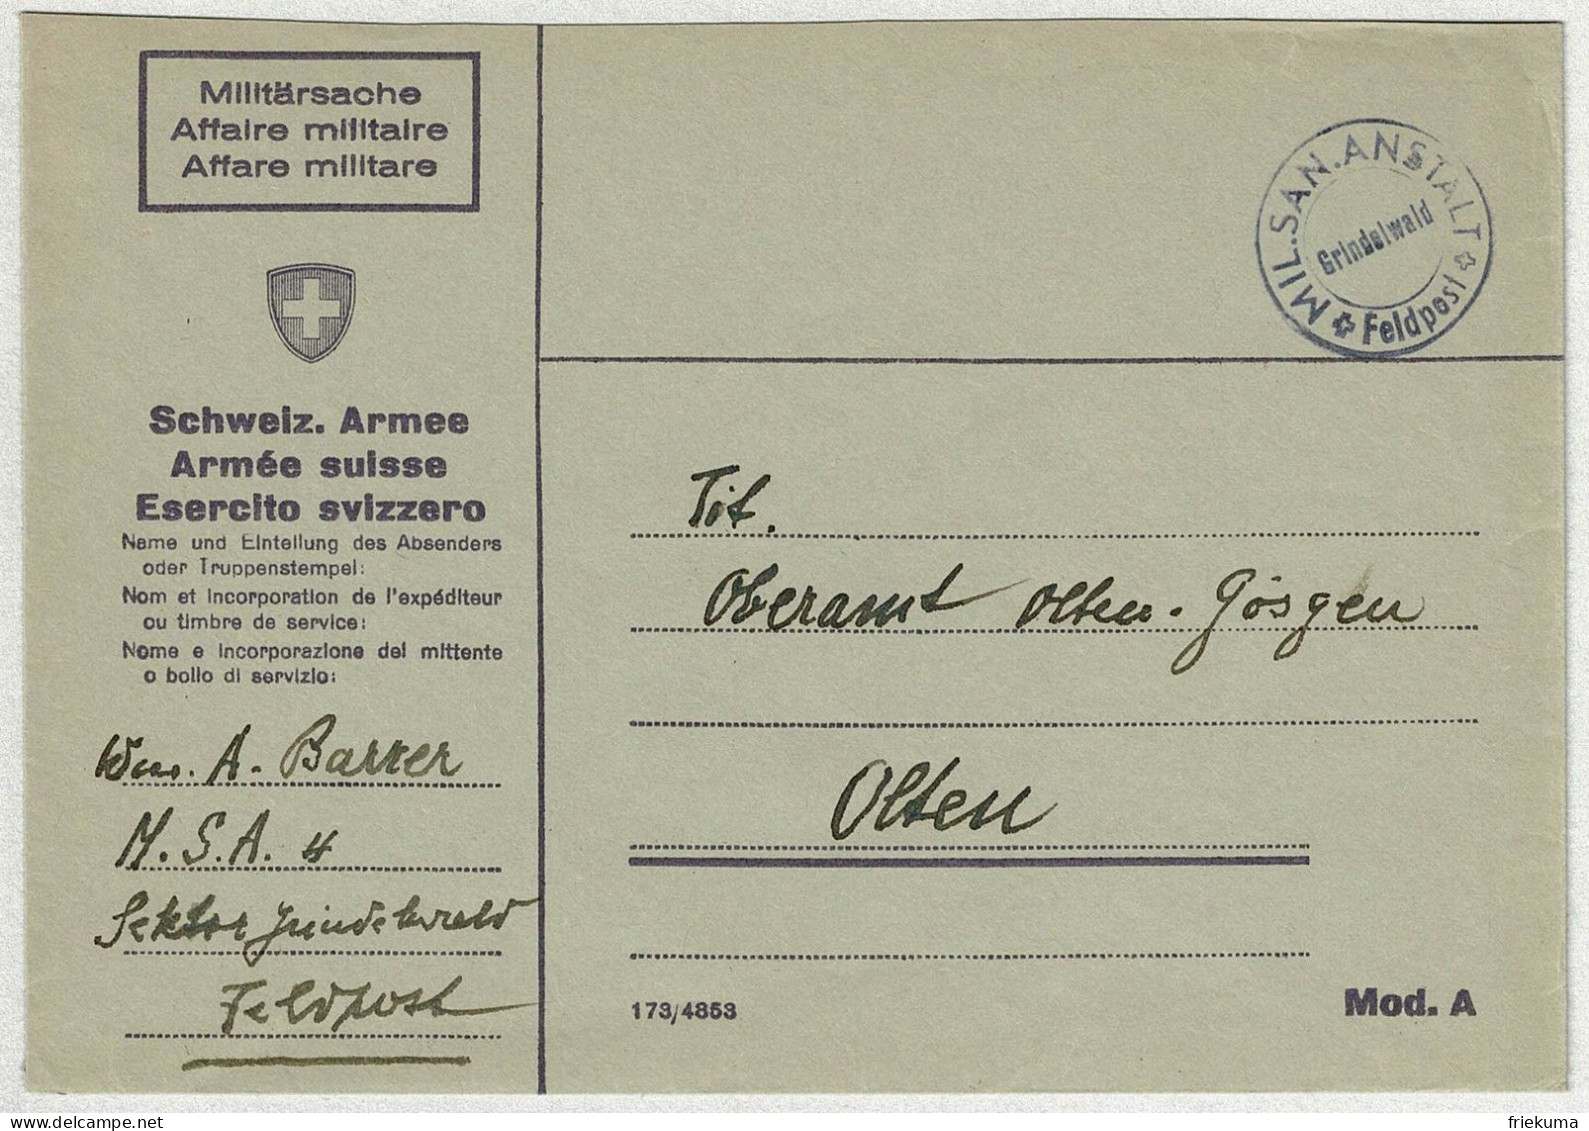 Militärsache
Affaire militaire
Affare militare
Schweiz. Armee
Armée suisse
Esercito svizzero
Name und Einteilung des Absenders
oder Truppenstempel:
Nom et incorporation de l'expéditeur
ou timbre de service:
Nome e incorporazione del mittente
o bollo di servizio:
A. Barrer
M.S.A. 4
Sektor Grindelwald
Feldpost
MIL. SAN. ANSTALT
Grindelwald
Feldpost
Tit.
Oberamt Olten-Gösgen
Olten
173/4853
Mod. A
friekuma